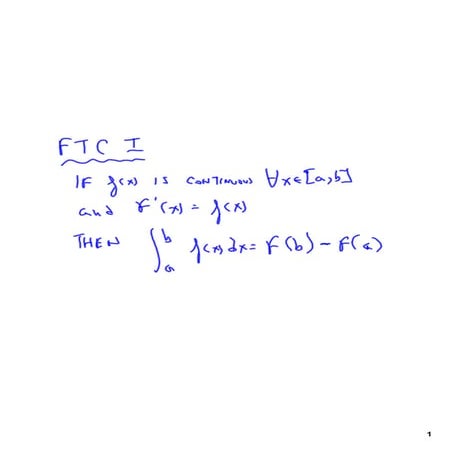 FTC I
IF f(x) IS CONTINUOUS ∀x∈[a,b]
and F'(x) = f(x)
THEN ∫_a^b f(x)dx = F(b) - F(a)
1